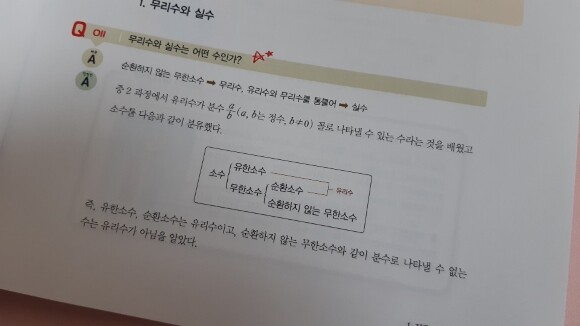 1. 무리수와 실수
Q 011 무리수와 실수는 어떤 수인가?
A 순환하지 않는 무한소수 ➡ 무리수, 유리수와 무리수를 통틀어 ➡ 실수
A 중2 과정에서 유리수가 분수 a/b (a, b는 정수, b≠0) 꼴로 나타낼 수 있는 수라는 것을 배웠고
소수를 다음과 같이 분류했다.
유한소수
소수 무한소수 순환소수 유리수
순환하지 않는 무한소수
즉, 유한소수, 순환소수는 유리수이고, 순환하지 않는 무한소수와 같이 분수로 나타낼 수 없는
수는 유리수가 아님을 알았다.